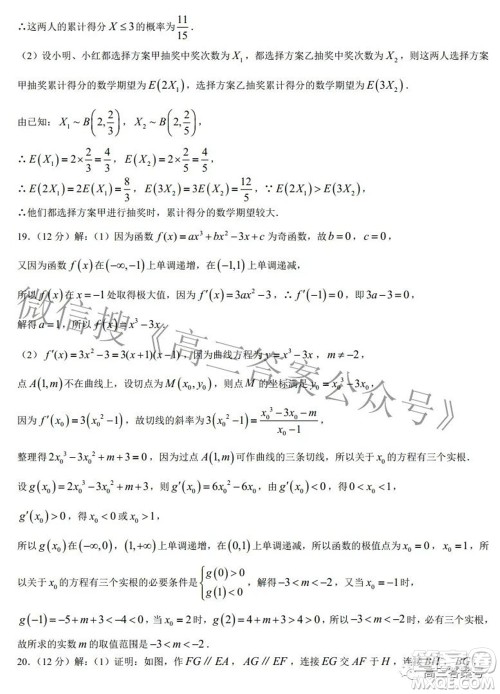 ∴这两人的累计得分 X ≤ 3 的概率为 11/15 .
（2）设小明、小红都选择方案甲抽奖中奖次数为 X₁，都选择方案乙抽奖中奖次数为 X₂，则这两人选择方案
甲抽奖累计得分的数学期望为 E(2X₁)，选择方案乙抽奖累计得分的数学期望为 E(3X₂)．
由已知：X₁ ~ B(2, 2/3)，X₂ ~ B(2, 2/5)，
∴ E(X₁) = 2×2/3 = 4/3，E(X₂) = 2×2/5 = 4/5，
∴ E(2X₁) = 2E(X₁) = 8/3，E(3X₂) = 3E(X₂) = 12/5，∵ E(2X₁) > E(3X₂)，
∴他们都选择方案甲进行抽奖时，累计得分的数学期望较大．
19.（12分）解：（1）因为函数 f(x) = ax³ + bx² − 3x + c 为奇函数，故 b = 0，c = 0，
又因为函数 f(x) 在 (−∞, −1) 上单调递增，在 (−1, 1) 上单调递减，
所以 f(x) 在 x = −1 处取得极大值，因为 f′(x) = 3ax² − 3，∴ f′(−1) = 0，即 3a − 3 = 0，
解得 a = 1，所以 f(x) = x³ − 3x．
（2） f′(x) = 3x² − 3 = 3(x+1)(x−1)，因为曲线方程为 y = x³ − 3x，m ≠ −2，
点 A(1, m) 不在曲线上，设切点为 M(x₀, y₀)，则点 M 的坐标满足 y₀ = x₀³ − 3x₀．
因为 f′(x₀) = 3(x₀² − 1)，故切线的斜率为 3(x₀² − 1) = (x₀³ − 3x₀ − m)/(x₀ − 1)，
整理得 2x₀³ − 3x₀² + m + 3 = 0，因为过点 A(1, m) 可作曲线的三条切线，所以关于 x₀ 的方程有三个实根．
设 g(x₀) = 2x₀³ − 3x₀² + m + 3，则 g′(x₀) = 6x₀² − 6x₀，由 g′(x₀) = 0，得 x₀ = 0 或 x₀ = 1，
g′(x₀) > 0，得 x₀ < 0 或 x₀ > 1，
所以 g(x₀) 在 (−∞, 0)，(1, +∞) 上单调递增，在 (0, 1) 上单调递减，所以函数的极值点为 x₀ = 0，x₀ = 1，所
以关于 x₀ 的方程有三个实根的必要条件是 { g(0) > 0 g(1) < 0，解得 −3 < m < −2，又当 x₀ = −1 时，
g(−1) = −5 + m + 3 < −4 < 0，当 x₀ = 2 时，g(2) = 4 + m + 3 > 4 > 0，所以 −3 < m < −2 时，必有三个实根，
故所求的实数 m 的取值范围是 −3 < m < −2．
20.（12分）解：（1）证明：如图，作 FG ∥ EA，AG ∥ EF，连接 EG 交 AF 于 H，连接 BH，BG，
微信搜《高三答案公众号》
高三答案号